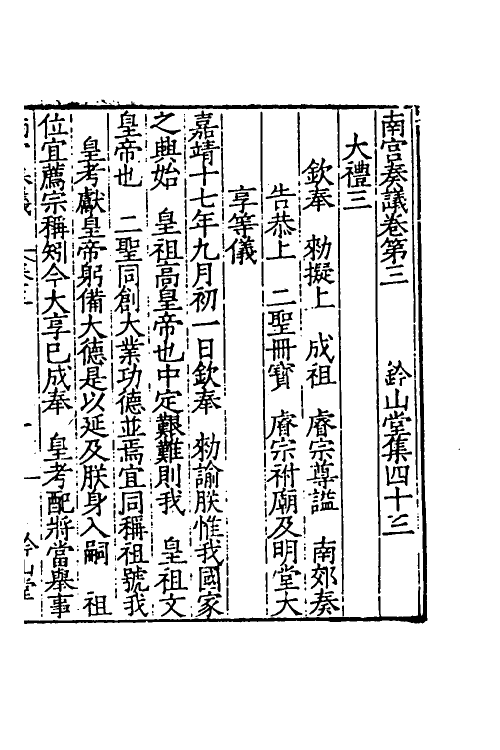 南宮奏議卷第三 鈐山堂集四十三
大禮三
欽奉 勑擬上 成祖 睿宗尊謚 南郊奏
告恭上 二聖冊寶 睿宗祔廟及明堂大
享等儀
嘉靖十七年九月初一日欽奉 勑諭朕惟我國家
之興始 皇祖高皇帝也中定艱難則我 皇祖文
皇帝也 二聖同創大業功德並焉宜同稱祖號我
皇考獻皇帝躬備大德是以延及朕身入嗣 祖
位宜薦宗稱矧今大享已成奉 皇考配將當舉事